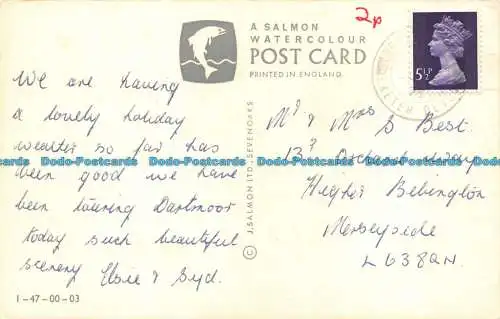 A SALMON
WATERCOLOUR
POST CARD
PRINTED IN ENGLAND
2p
5½P
We are having
a lovely holiday
weather so far has
been good we have
been touring Dartmoor
today such beautiful
scenery Elsie & Syd.
1-47-00-03
© J. SALMON LTD. SEVENOAKS
Mr & Mrs S Best.
137 Orchard Way
Higher Bebington
Merseyside
L638QN.
Dodo-Postcards Dodo-Postcards Dodo-Postcards Dodo-Postcards
Dodo-Postcards Dodo-Postcards Dodo-Postcards